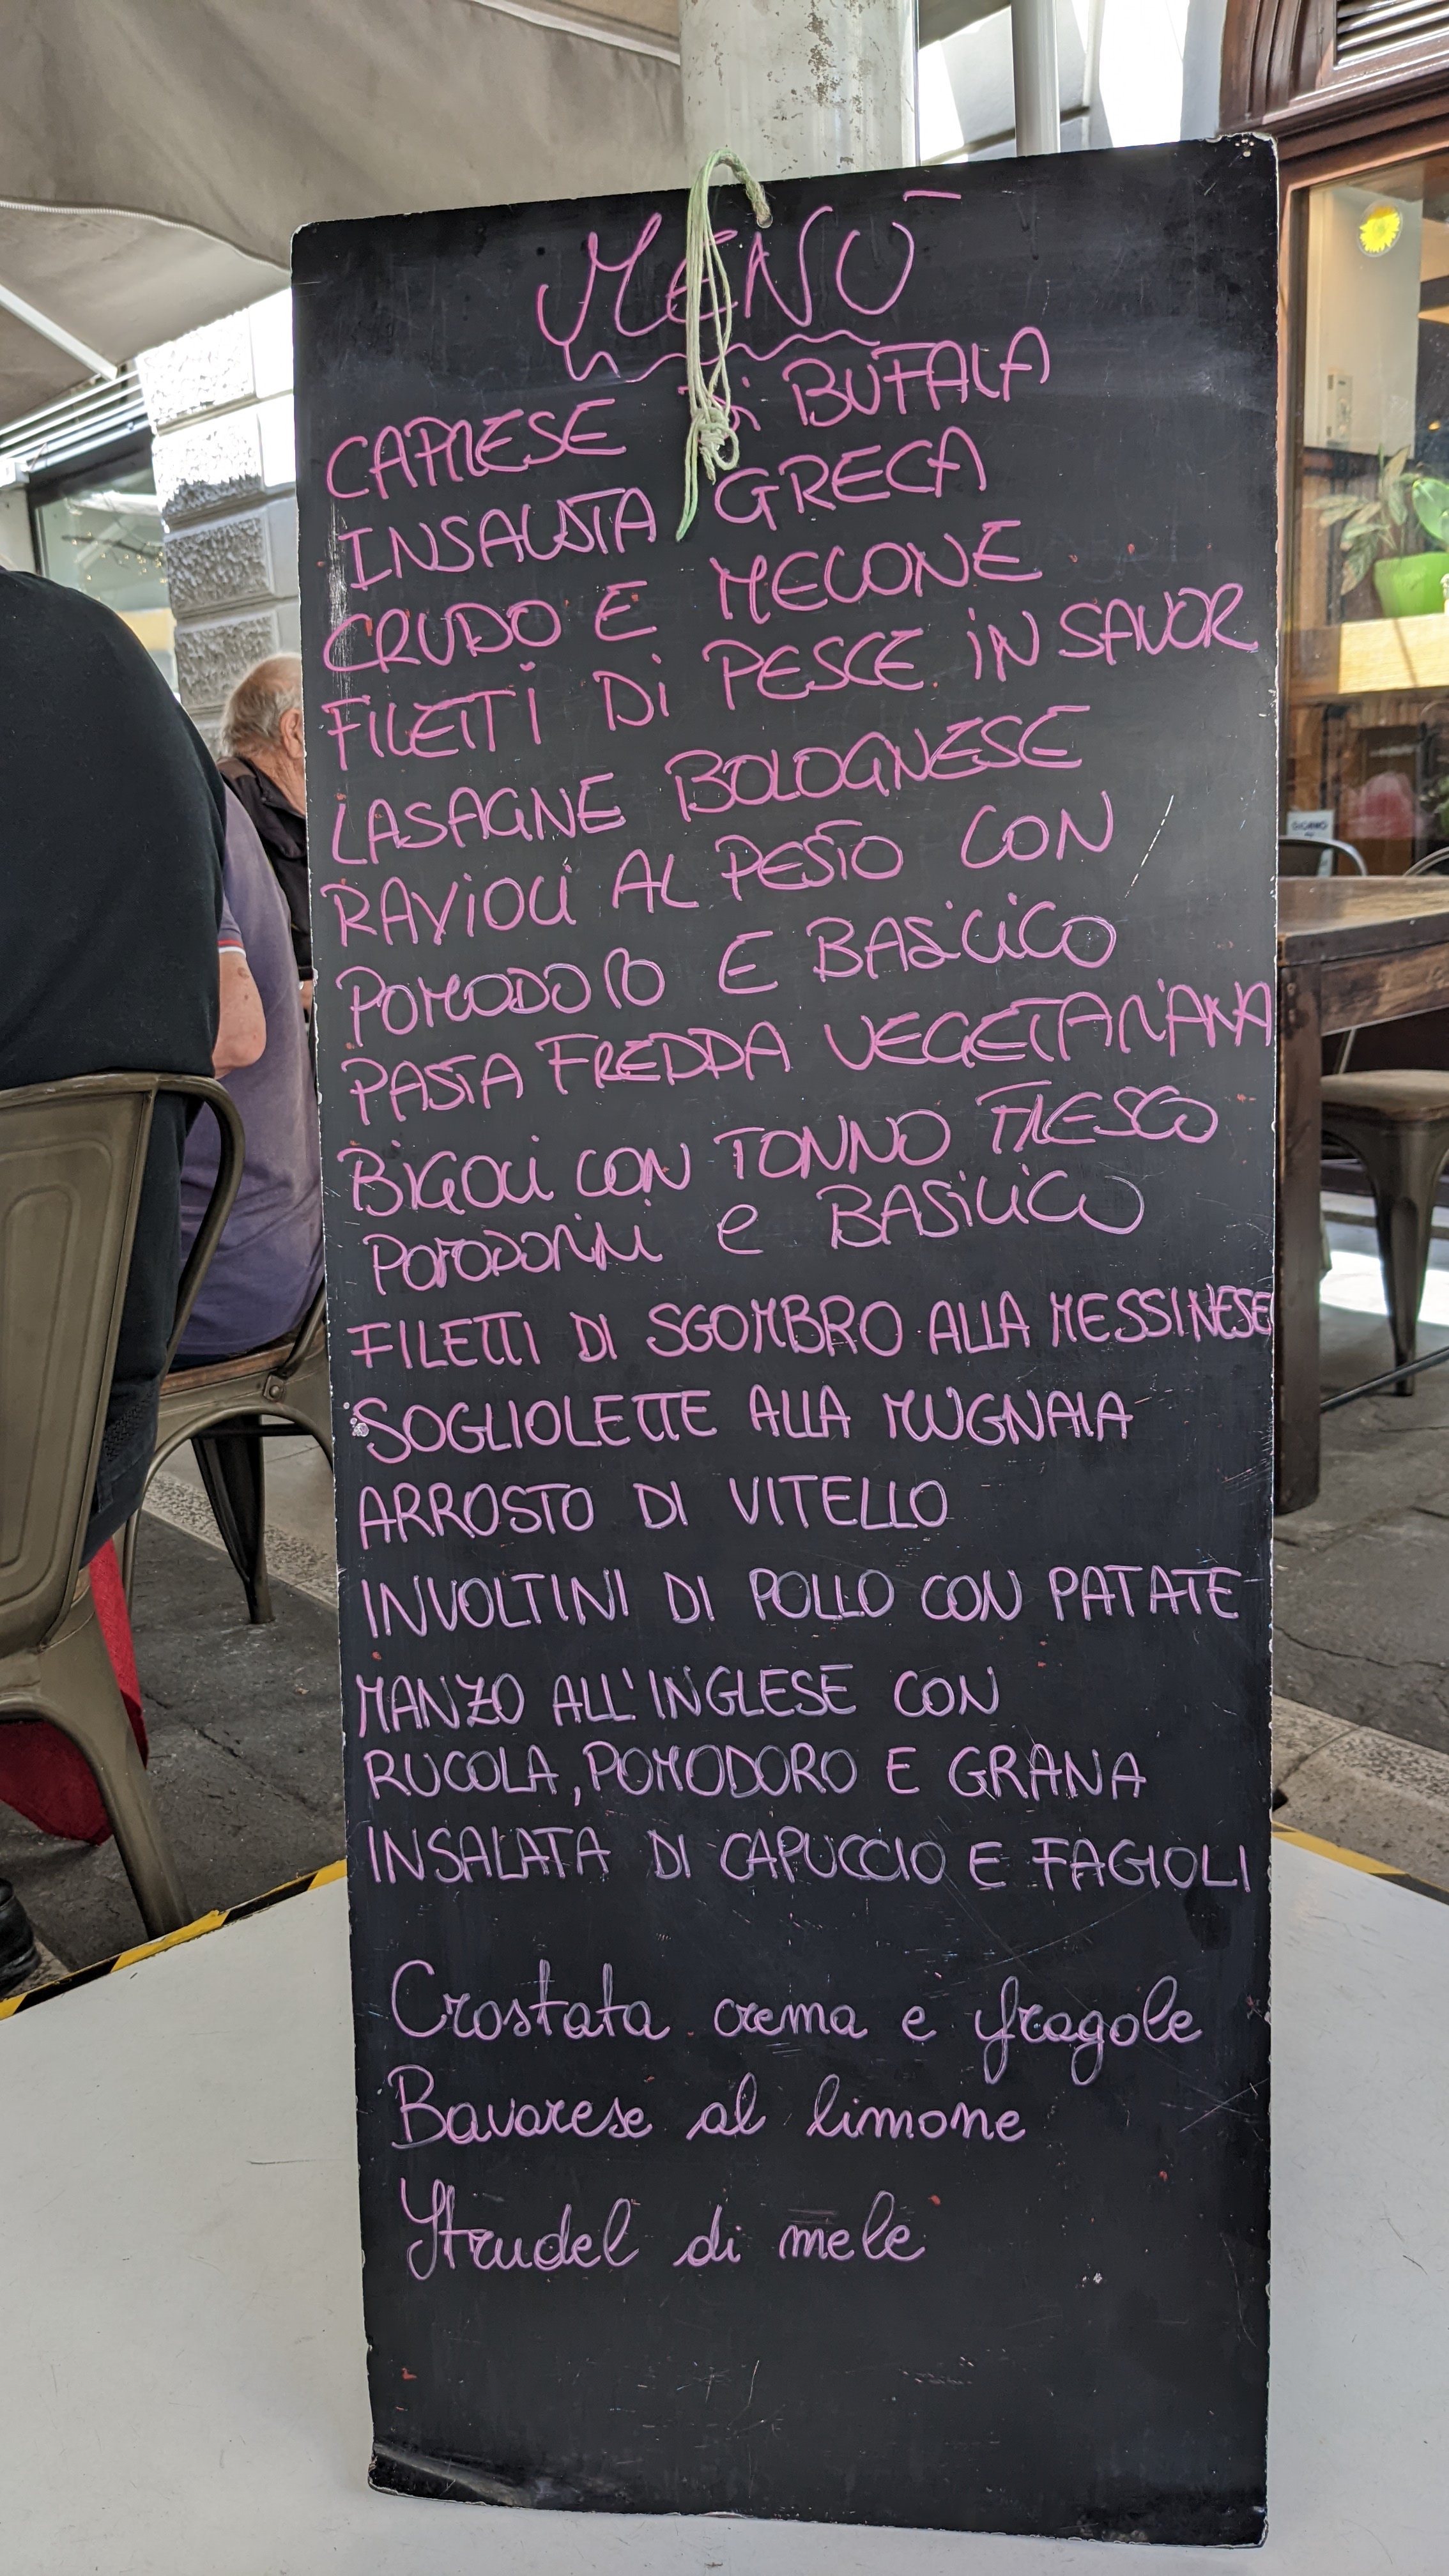 MENÙ
CAPRESE Di BUFALA
INSALATA GRECA
CRUDO E MELONE
FILETTi Di PESCE iN SAVOR
LASAGNE BOLOGNESE
RAViOLi AL PESTO CON
POMODORO E BASiLiCO
PASTA FREDDA VEGETARiANA
BiGOLi CON TONNO FRESCO
POMODORiNi e BASiLiCO
FILETTI DI SGOMBRO ALLA MESSINESE
SOGLIOLETTE ALLA MUGNAIA
ARROSTO DI VITELLO
INVOLTINI DI POLLO CON PATATE
MANZO ALL'INGLESE CON
RUCOLA, POMODORO E GRANA
INSALATA DI CAPUCCIO E FAGIOLI
Crostata crema e fragole
Bavarese al limone
Strudel di mele